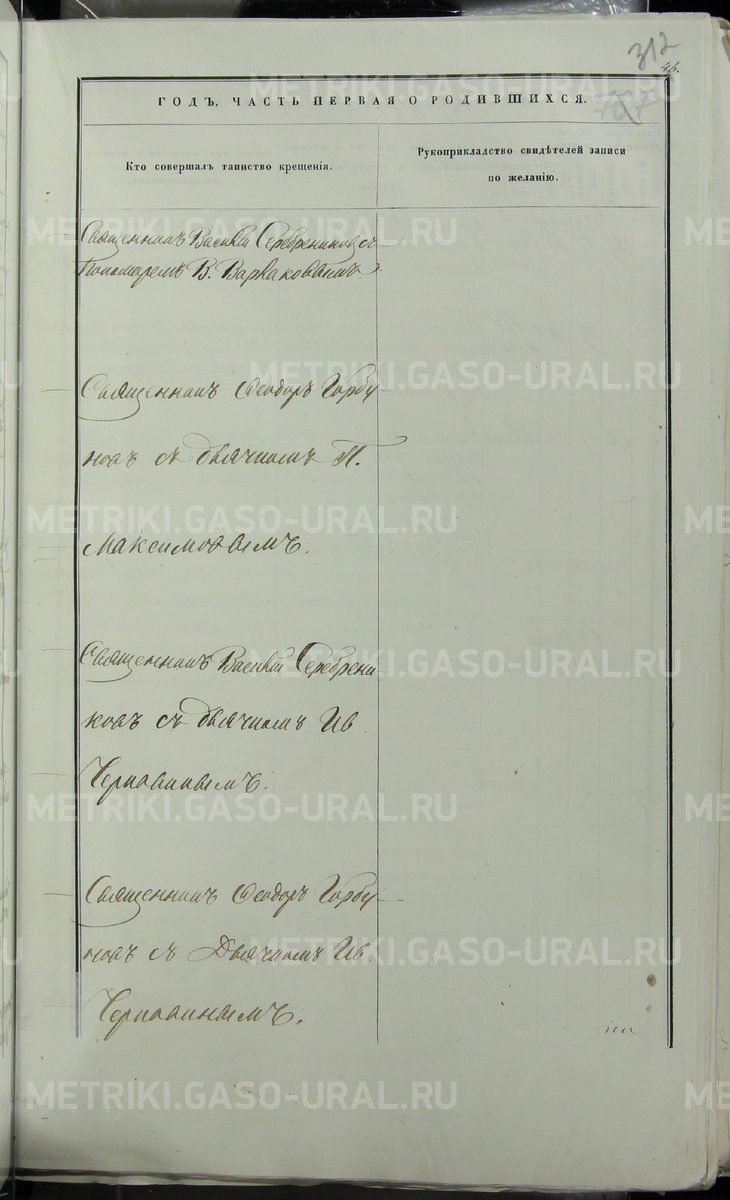 312
46.
ГОДЪ, ЧАСТЬ ПЕРВАЯ О РОДИВШИХСЯ.
Кто совершалъ таинство крещенія.
Рукоприкладство свидѣтелей записи
по желанію.
Священникъ Василій Серебрениковъ съ
Пономаремъ В.
Священникъ Ѳеодоръ Горбу-
новъ съ дьячкомъ П.
Максимовымъ.
Священникъ Василій Серебрени
ковъ съ дьячкомъ Ив
Черпавинымъ.
Священникъ Ѳеодоръ Горбу-
новъ съ Дьячкомъ Ив.
Черпавинымъ.
METRIKI.GASO-URAL.RU